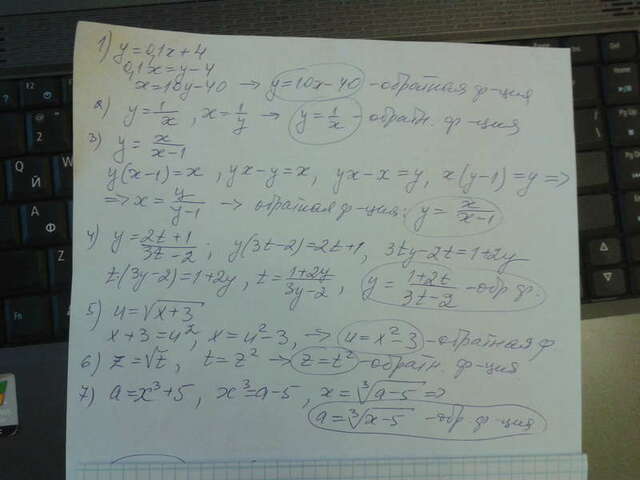 1) y=0,1x+4
0,1x=y-4
x=10y-40 → y=10x-40 -обратная ф-ция
2) y=1/x , x=1/y → y=1/x - обратн. ф-ция
3) y=x/(x-1)
y(x-1)=x , yx-y=x, yx-x=y, x(y-1)=y =>
=> x=y/(y-1) → обратная ф-ция: y=x/(x-1)
4) y=(2t+1)/(3t-2) ; y(3t-2)=2t+1, 3ty-2t=1+2y
t(3y-2)=1+2y, t=(1+2y)/(3y-2) , y=(1+2t)/(3t-2) -обр ф.
5) u=√(x+3)
x+3=u², x=u²-3, => u=x²-3 -обратная ф.
6) z=√t, t=z² → z=t² -обратн. ф-ция
7) a=x³+5, x³=a-5, x=∛(a-5) =>
a=∛(x-5) -обр ф-ция
Q
Й
A
Ф
Fn